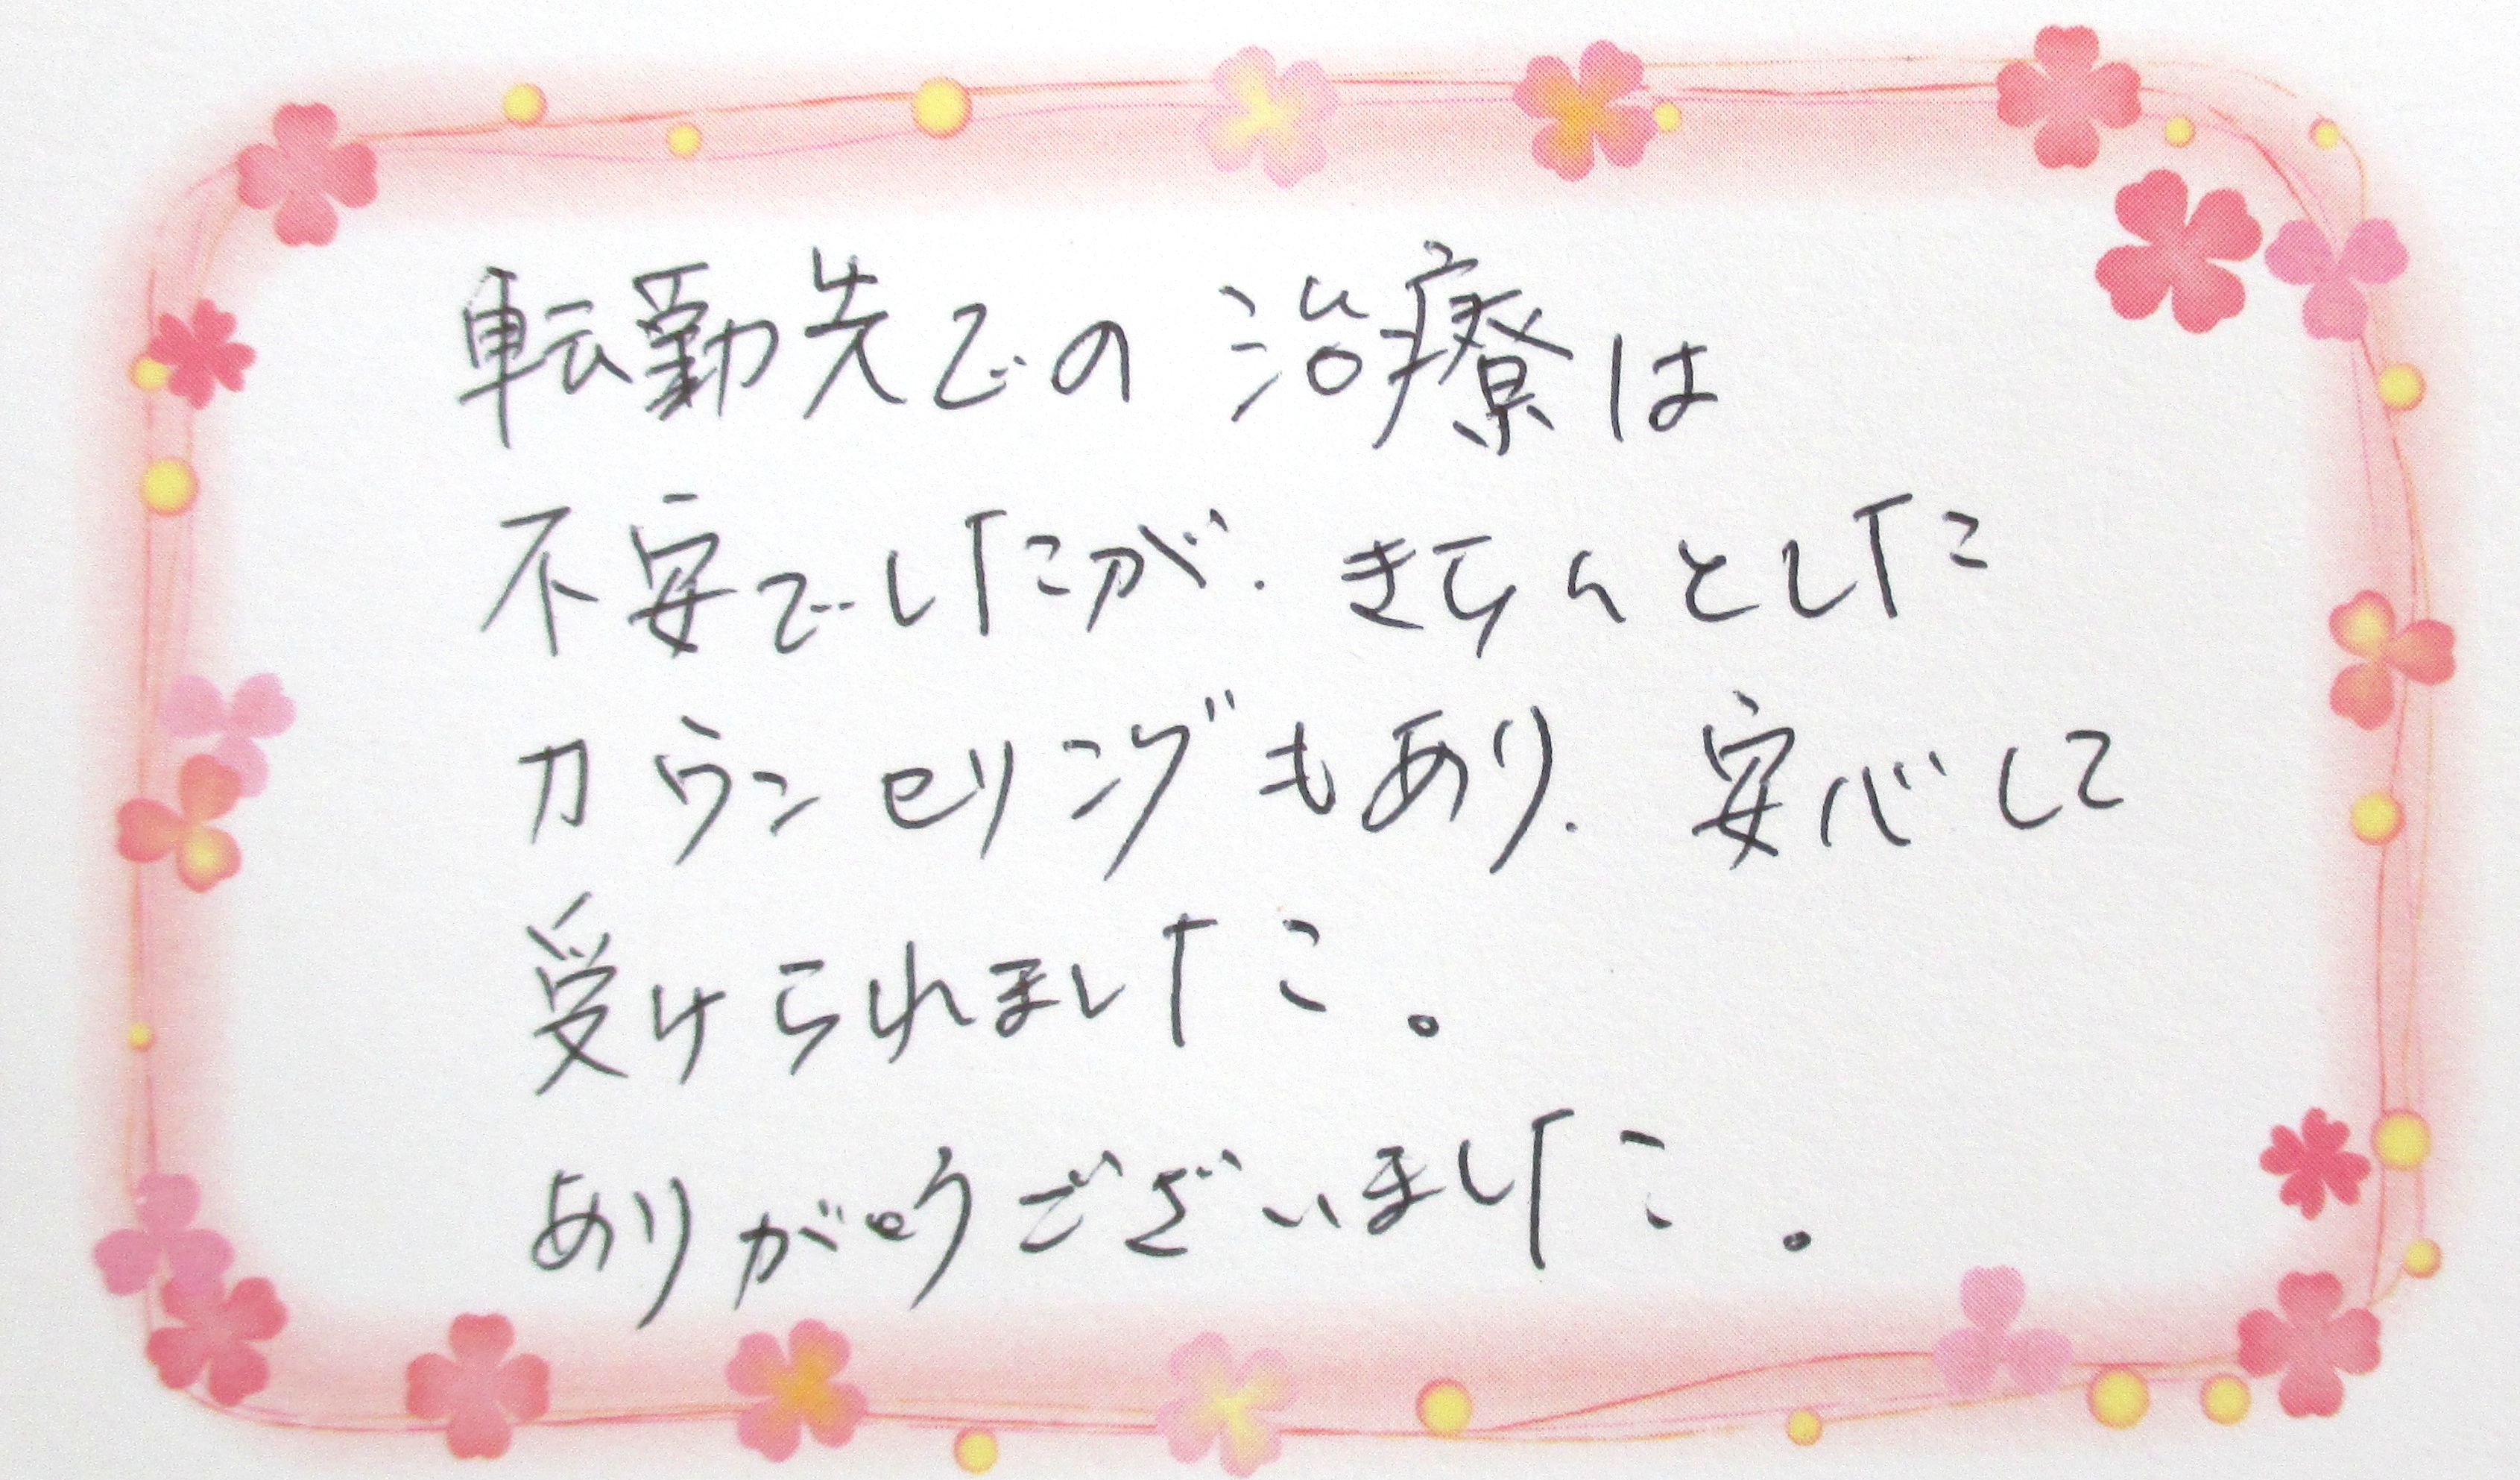 転勤先での治療は
不安でしたが、きちんとした
カウンセリングもあり、安心して
受けられました。
ありがとうございました。